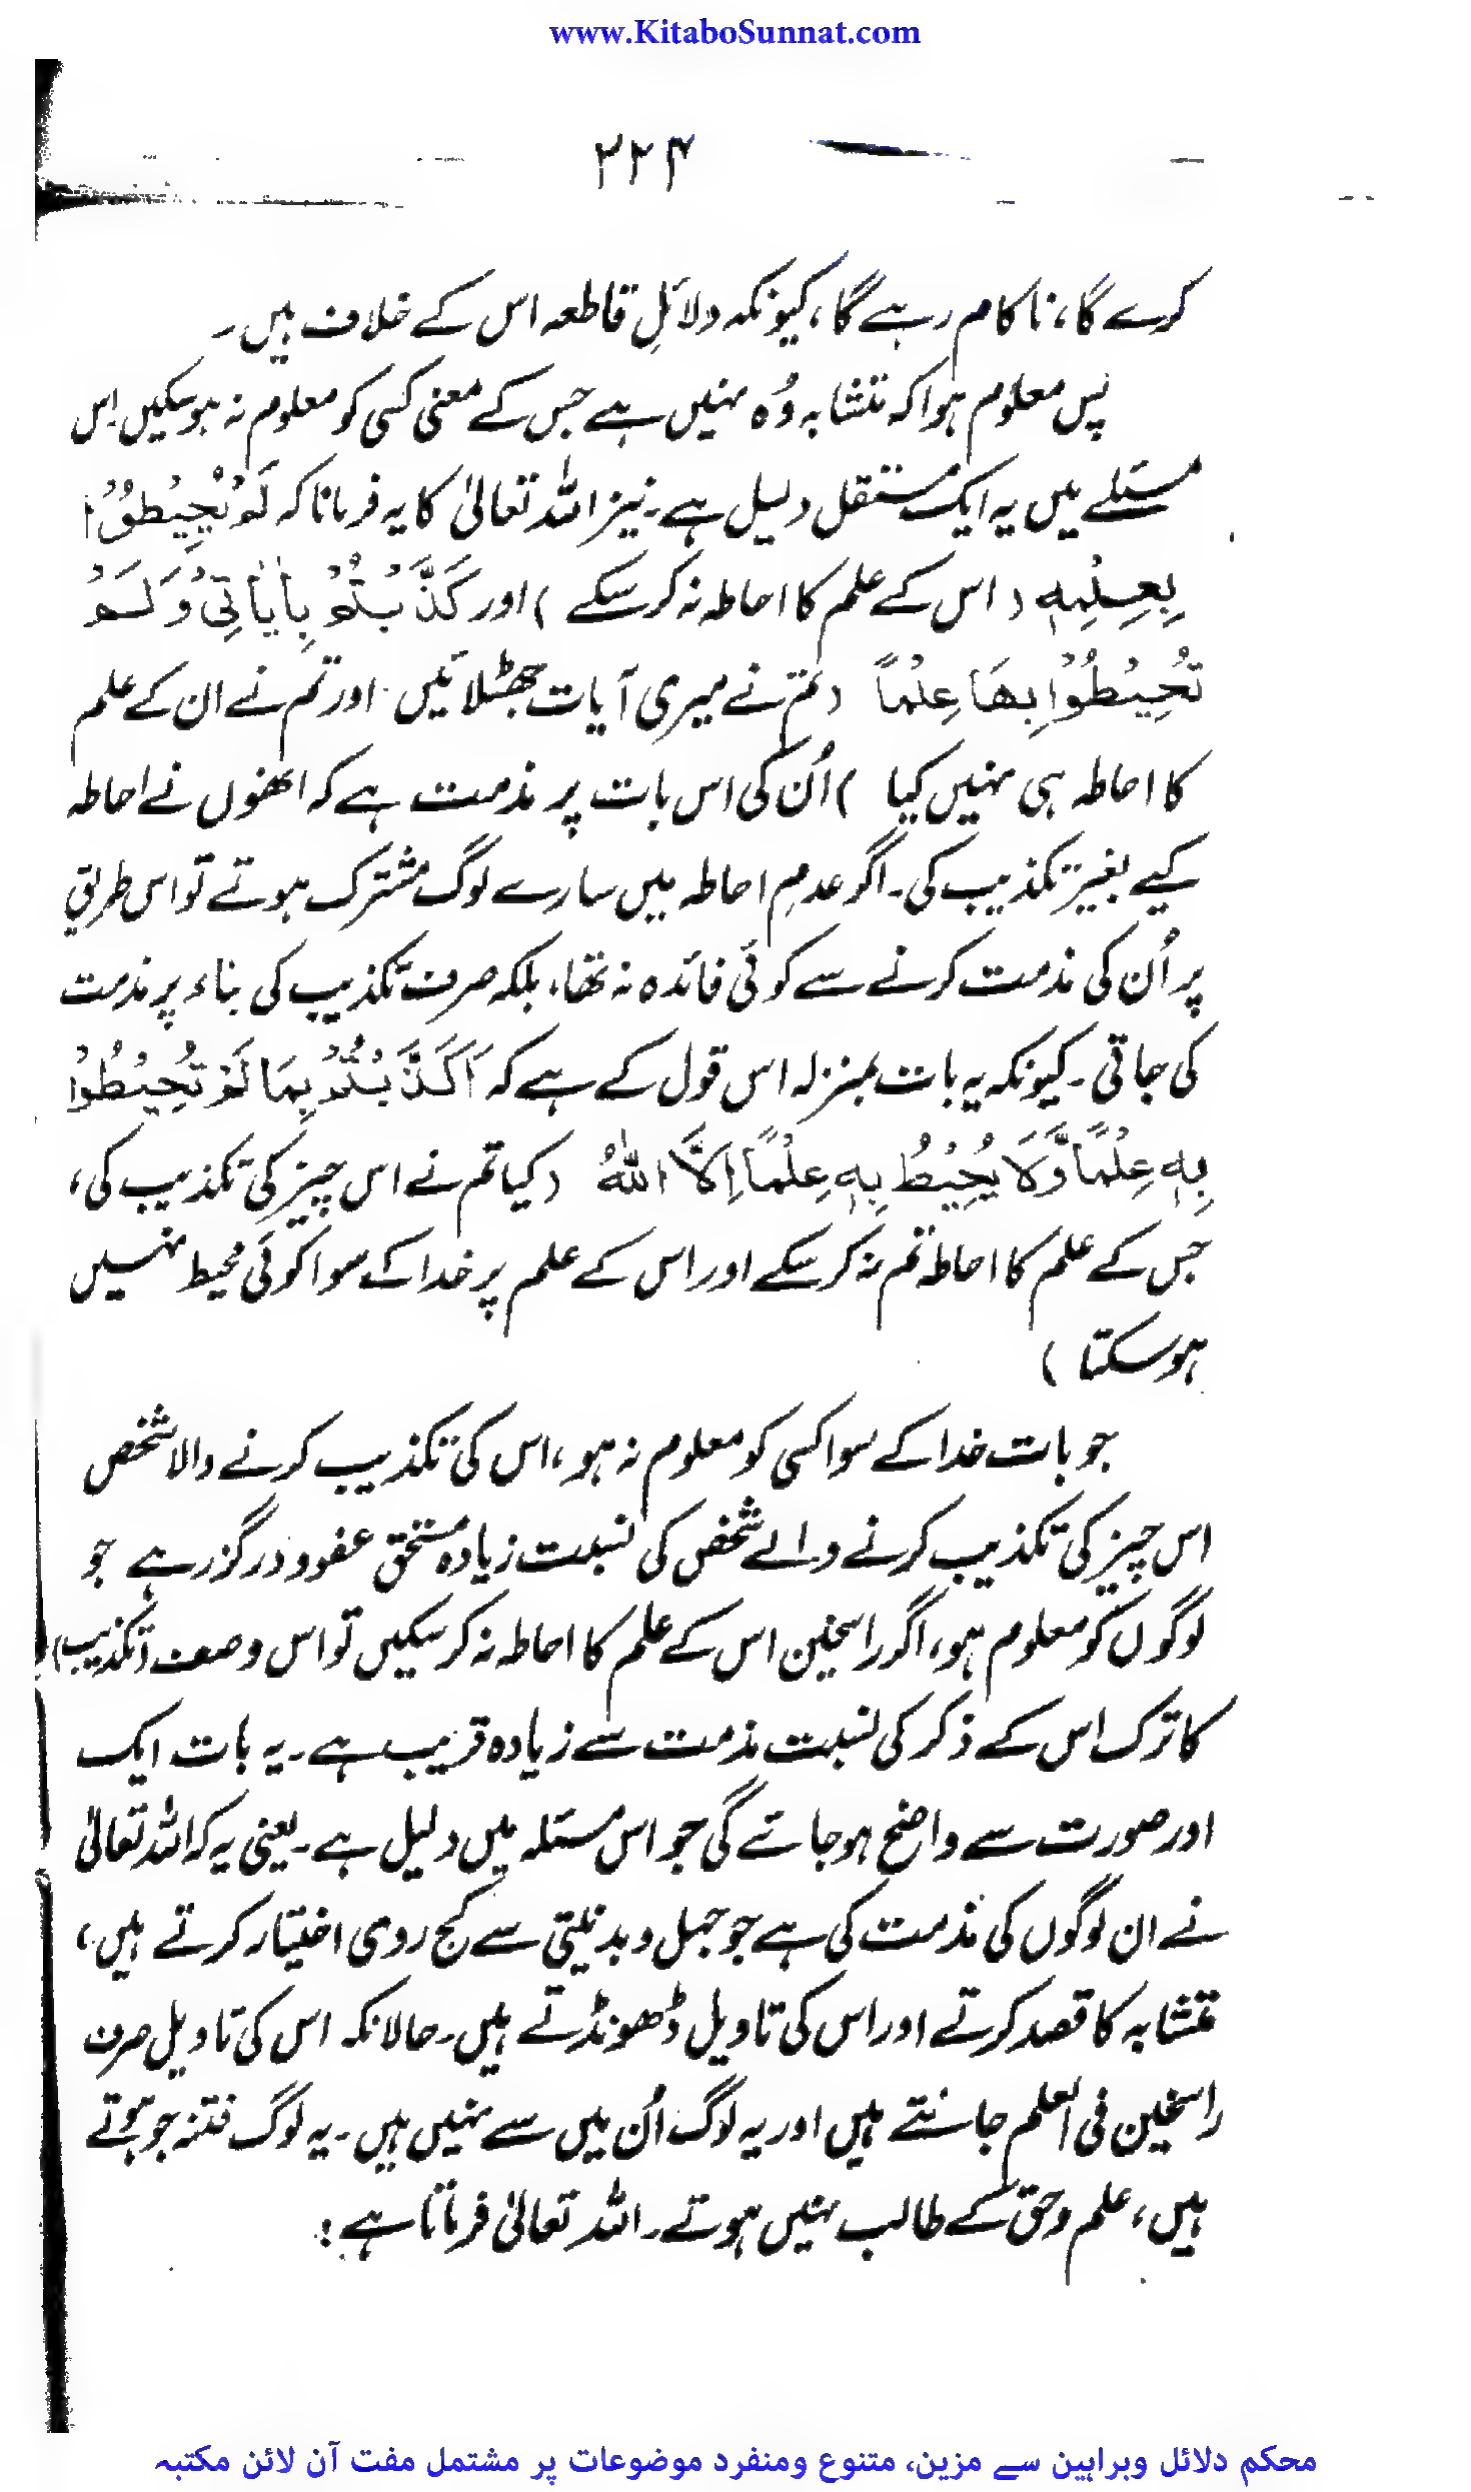 www.KitaboSunnat.com
۲۲۴
کرے گا، ناکام رہے گا، کیونکہ دلائلِ قاطعہ اس کے خلاف ہیں۔
پس معلوم ہوا کہ متشابہ وُہ نہیں ہے جس کے معنی کسی کو معلوم نہ ہو سکیں۔ اس
مسئلے میں یہ ایک مستقل دلیل ہے۔ نیز اللہ تعالیٰ کا یہ فرمانا کہ لَمْ يُحِيْطُوْا
بِعِلْمِهٖ (اس کے علم کا احاطہ نہ کر سکے) اور كَذَّبْتُمْ بِاٰيَاتِيْ وَلَمْ
تُحِيْطُوْا بِهَا عِلْمًا (تم نے میری آیات جھٹلائیں۔ اور تم نے ان کے علم
کا احاطہ ہی نہیں کیا) اُن کی اس بات پر مذمت ہے کہ انھوں نے احاطہ
کیے بغیر تکذیب کی۔ اگر عدمِ احاطہ میں سارے لوگ مشترک ہوتے تو اس طریق
پر اُن کی مذمت کرنے سے کوئی فائدہ نہ تھا، بلکہ صرف تکذیب کی بناء پر مذمت
کی جاتی۔ کیونکہ یہ بات بمنزلہ اس قول کے ہے کہ اَكَذَّبْتُمْ بِمَا لَمْ تُحِيْطُوْا
بِهٖ عِلْمًا وَّلَا يُحِيْطُ بِهٖ عِلْمًا اِلَّا اللّٰهُ (کیا تم نے اس چیز کی تکذیب کی،
جس کے علم کا احاطہ تم نہ کر سکے اور اس کے علم پر خدا کے سوا کوئی محیط نہیں
ہو سکتا)
جو بات خدا کے سوا کسی کو معلوم نہ ہو، اس کی تکذیب کرنے والا شخص
اس چیز کی تکذیب کرنے والے شخص کی نسبت زیادہ مستحق عفو و درگزر ہے جو
لوگوں کو معلوم ہو، اگر راسخین اس کے علم کا احاطہ نہ کر سکیں تو اس وصف (تکذیب)
کا ترک اس کے ذکر کی نسبت مذمت سے زیادہ قریب ہے۔ یہ بات ایک
اور صورت سے واضح ہو جائے گی جو اس مسئلہ میں دلیل ہے۔ یعنی یہ کہ اللہ تعالیٰ
نے ان لوگوں کی مذمت کی ہے جو جہل و بد نیتی سے کج روی اختیار کرتے ہیں،
متشابہ کا قصد کرتے اور اس کی تاویل ڈھونڈتے ہیں۔ حالانکہ اس کی تاویل صرف
راسخین فی العلم جانتے ہیں اور یہ لوگ اُن میں سے نہیں ہیں۔ یہ لوگ فتنہ جو ہوتے
ہیں، علم و حق کے طالب نہیں ہوتے۔ اللہ تعالیٰ فرماتا ہے:
محکم دلائل وبراہین سے مزین، متنوع ومنفرد موضوعات پر مشتمل مفت آن لائن مکتبہ